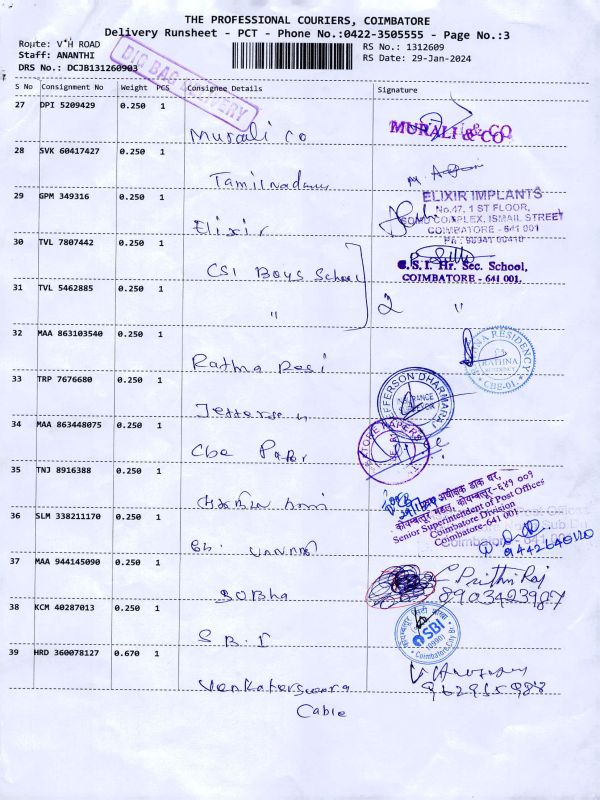 THE PROFESSIONAL COURIERS, COIMBATORE
Delivery Runsheet - PCT - Phone No.:0422-3505555 - Page No.:3
Route: V*H ROAD
Staff: ANANTHI
DRS No.: DCJB131260903
RS No.: 1312609
RS Date: 29-Jan-2024
BIG BAG DELIVERY
S No Consignment No Weight PCS Consignee Details Signature
27 DPI 5209429 0.250 1
Murali Co
MURALI & CO
28 SVK 60417427 0.250 1
Tamilnadu
29 GPM 349316 0.250 1
Elixir
ELIXIR IMPLANTS
No.47, 1 ST FLOOR,
COMPLEX, ISMAIL STREET
COIMBATORE - 641 001
30 TVL 7807442 0.250 1
CSI Boys School
C.S.I. Hr. Sec. School,
COIMBATORE - 641 001.
31 TVL 5462885 0.250 1
" 2 "
32 MAA 863103540 0.250 1
Rathna Resi
RATHNA RESIDENCY
CBE-01
33 TRP 7676680 0.250 1
Jefferson
JEFFERSON DHARMARAJ
34 MAA 863448075 0.250 1
Cbe Paper
35 TNJ 8916388 0.250 1
Senior Superintendent of Post Offices
Coimbatore Division
Coimbatore-641 001
36 SLM 338211170 0.250 1
37 MAA 944145090 0.250 1
Sobha
C. Prithri Raj
8903423987
38 KCM 40287013 0.250 1
S.B.I
SBI
39 HRD 360078127 0.670 1
Venkateswara
Cable